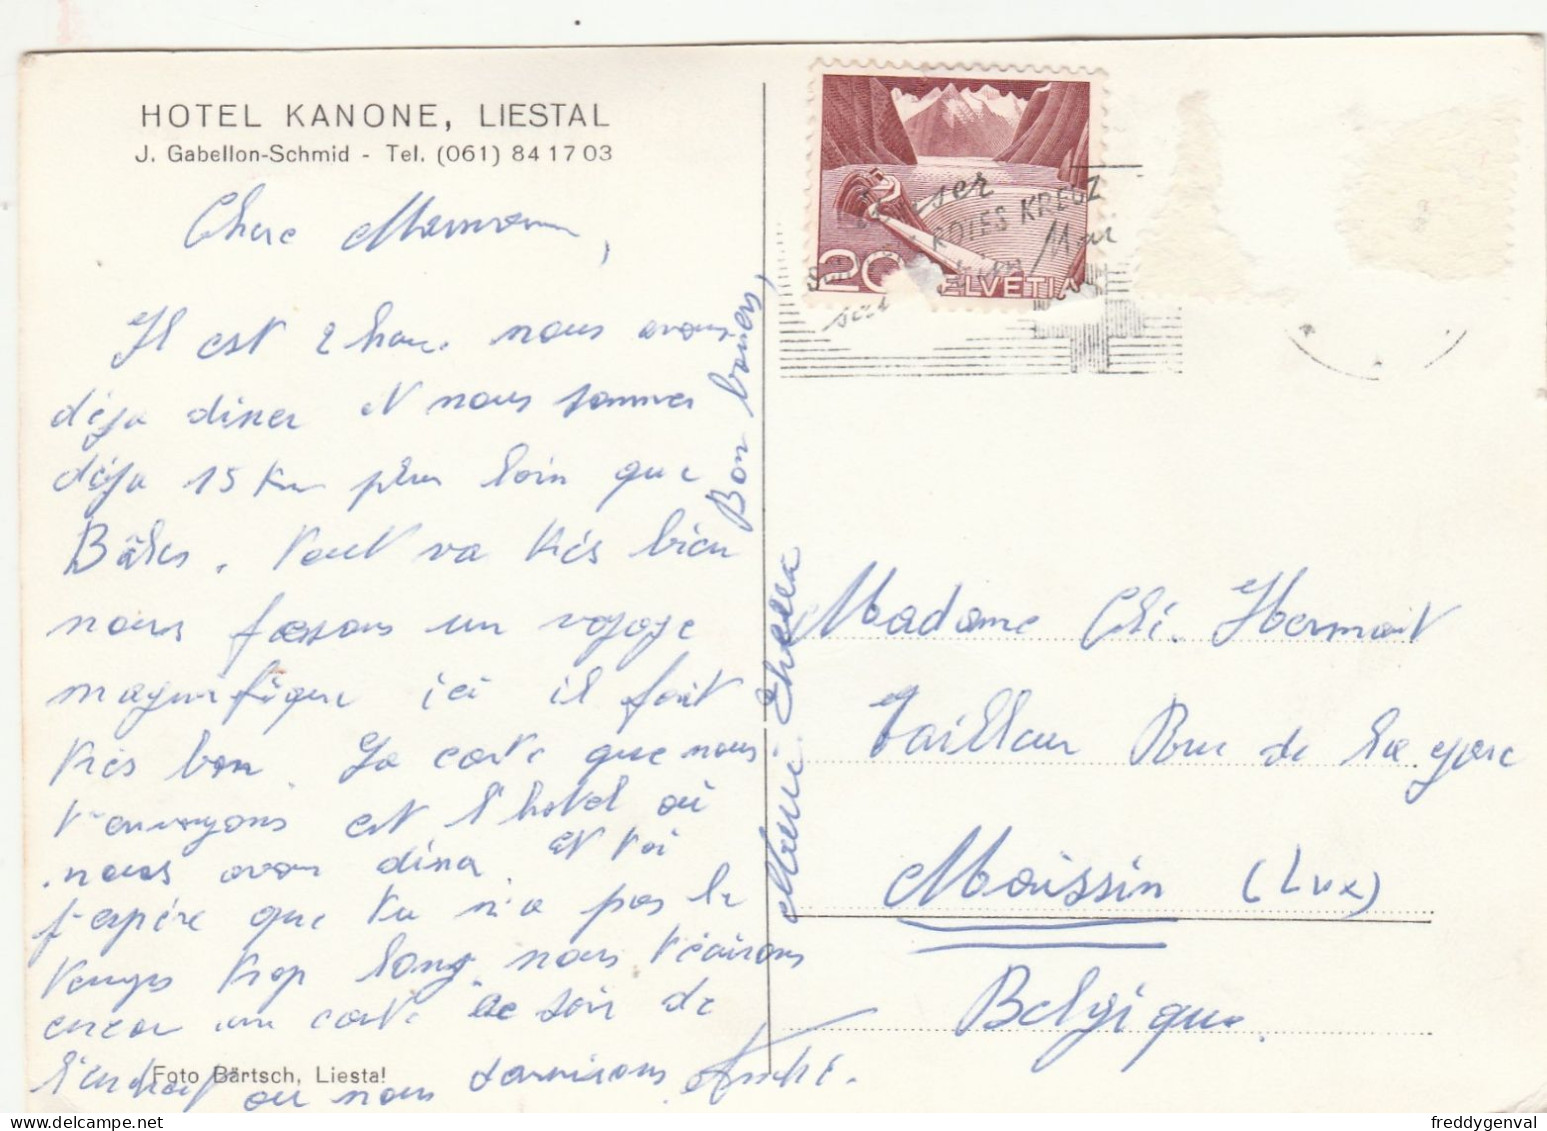 HOTEL KANONE, LIESTAL
J. Gabellon-Schmid - Tel. (061) 84 17 03
Chere Maman,
Il est 2 heu. nous avons
déja diner et nous sommes
déja 15 Km plus loin que
Bâles. Tout va très bien
nous faisons un voyage
magnifique ici il fait
très bon. La carte que nous
t'envoyons est l'hotel où
nous avons dina. Et toi
j'espère que tu n'a pas le
temps trop long. nous t'écrirons
encor un carte ce soir de
l'endroit ou nous arriverons. André.
Bon baisers,
Foto Bärtsch, Liestal
ROTES KREUZ
20
HELVETIA
Madame Hermant
Tailleur Rue de la gare
Maissin (Lux)
Belgique.
freddygenval